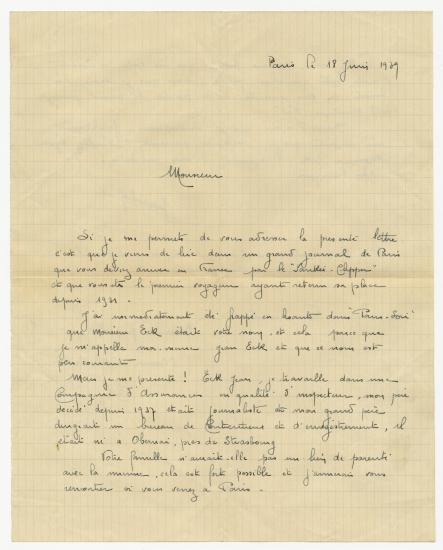 Paris le 18 Juin 1939
Monsieur
Si je me permets de vous adresser la présente lettre
c'est que je viens de lire dans un grand journal de Paris
que vous deviez arriver en France par le "Yankee-Clipper"
et que vous êtes le premier voyageur ayant retenu sa place
depuis 1931.
J'ai immédiatement été frappé en lisant dans Paris-Soir
que Monsieur Eck était votre nom, et cela parce que
je m'appelle moi-même Jean Eck et que ce nom est
peu courant
Mais je me présente! Eck Jean, je travaille dans une
Compagnie d'Assurances en qualité d'inspecteur, mon père
décédé depuis 1937 était journaliste et mon grand père
dirigeait un bureau de Contentieux et d'enregistrement, il
était né à Obernai, près de Strasbourg
Votre famille n'aurait-elle pas un lien de parenté
avec la mienne, cela est fort possible et j'aimerais vous
rencontrer si vous venez à Paris.